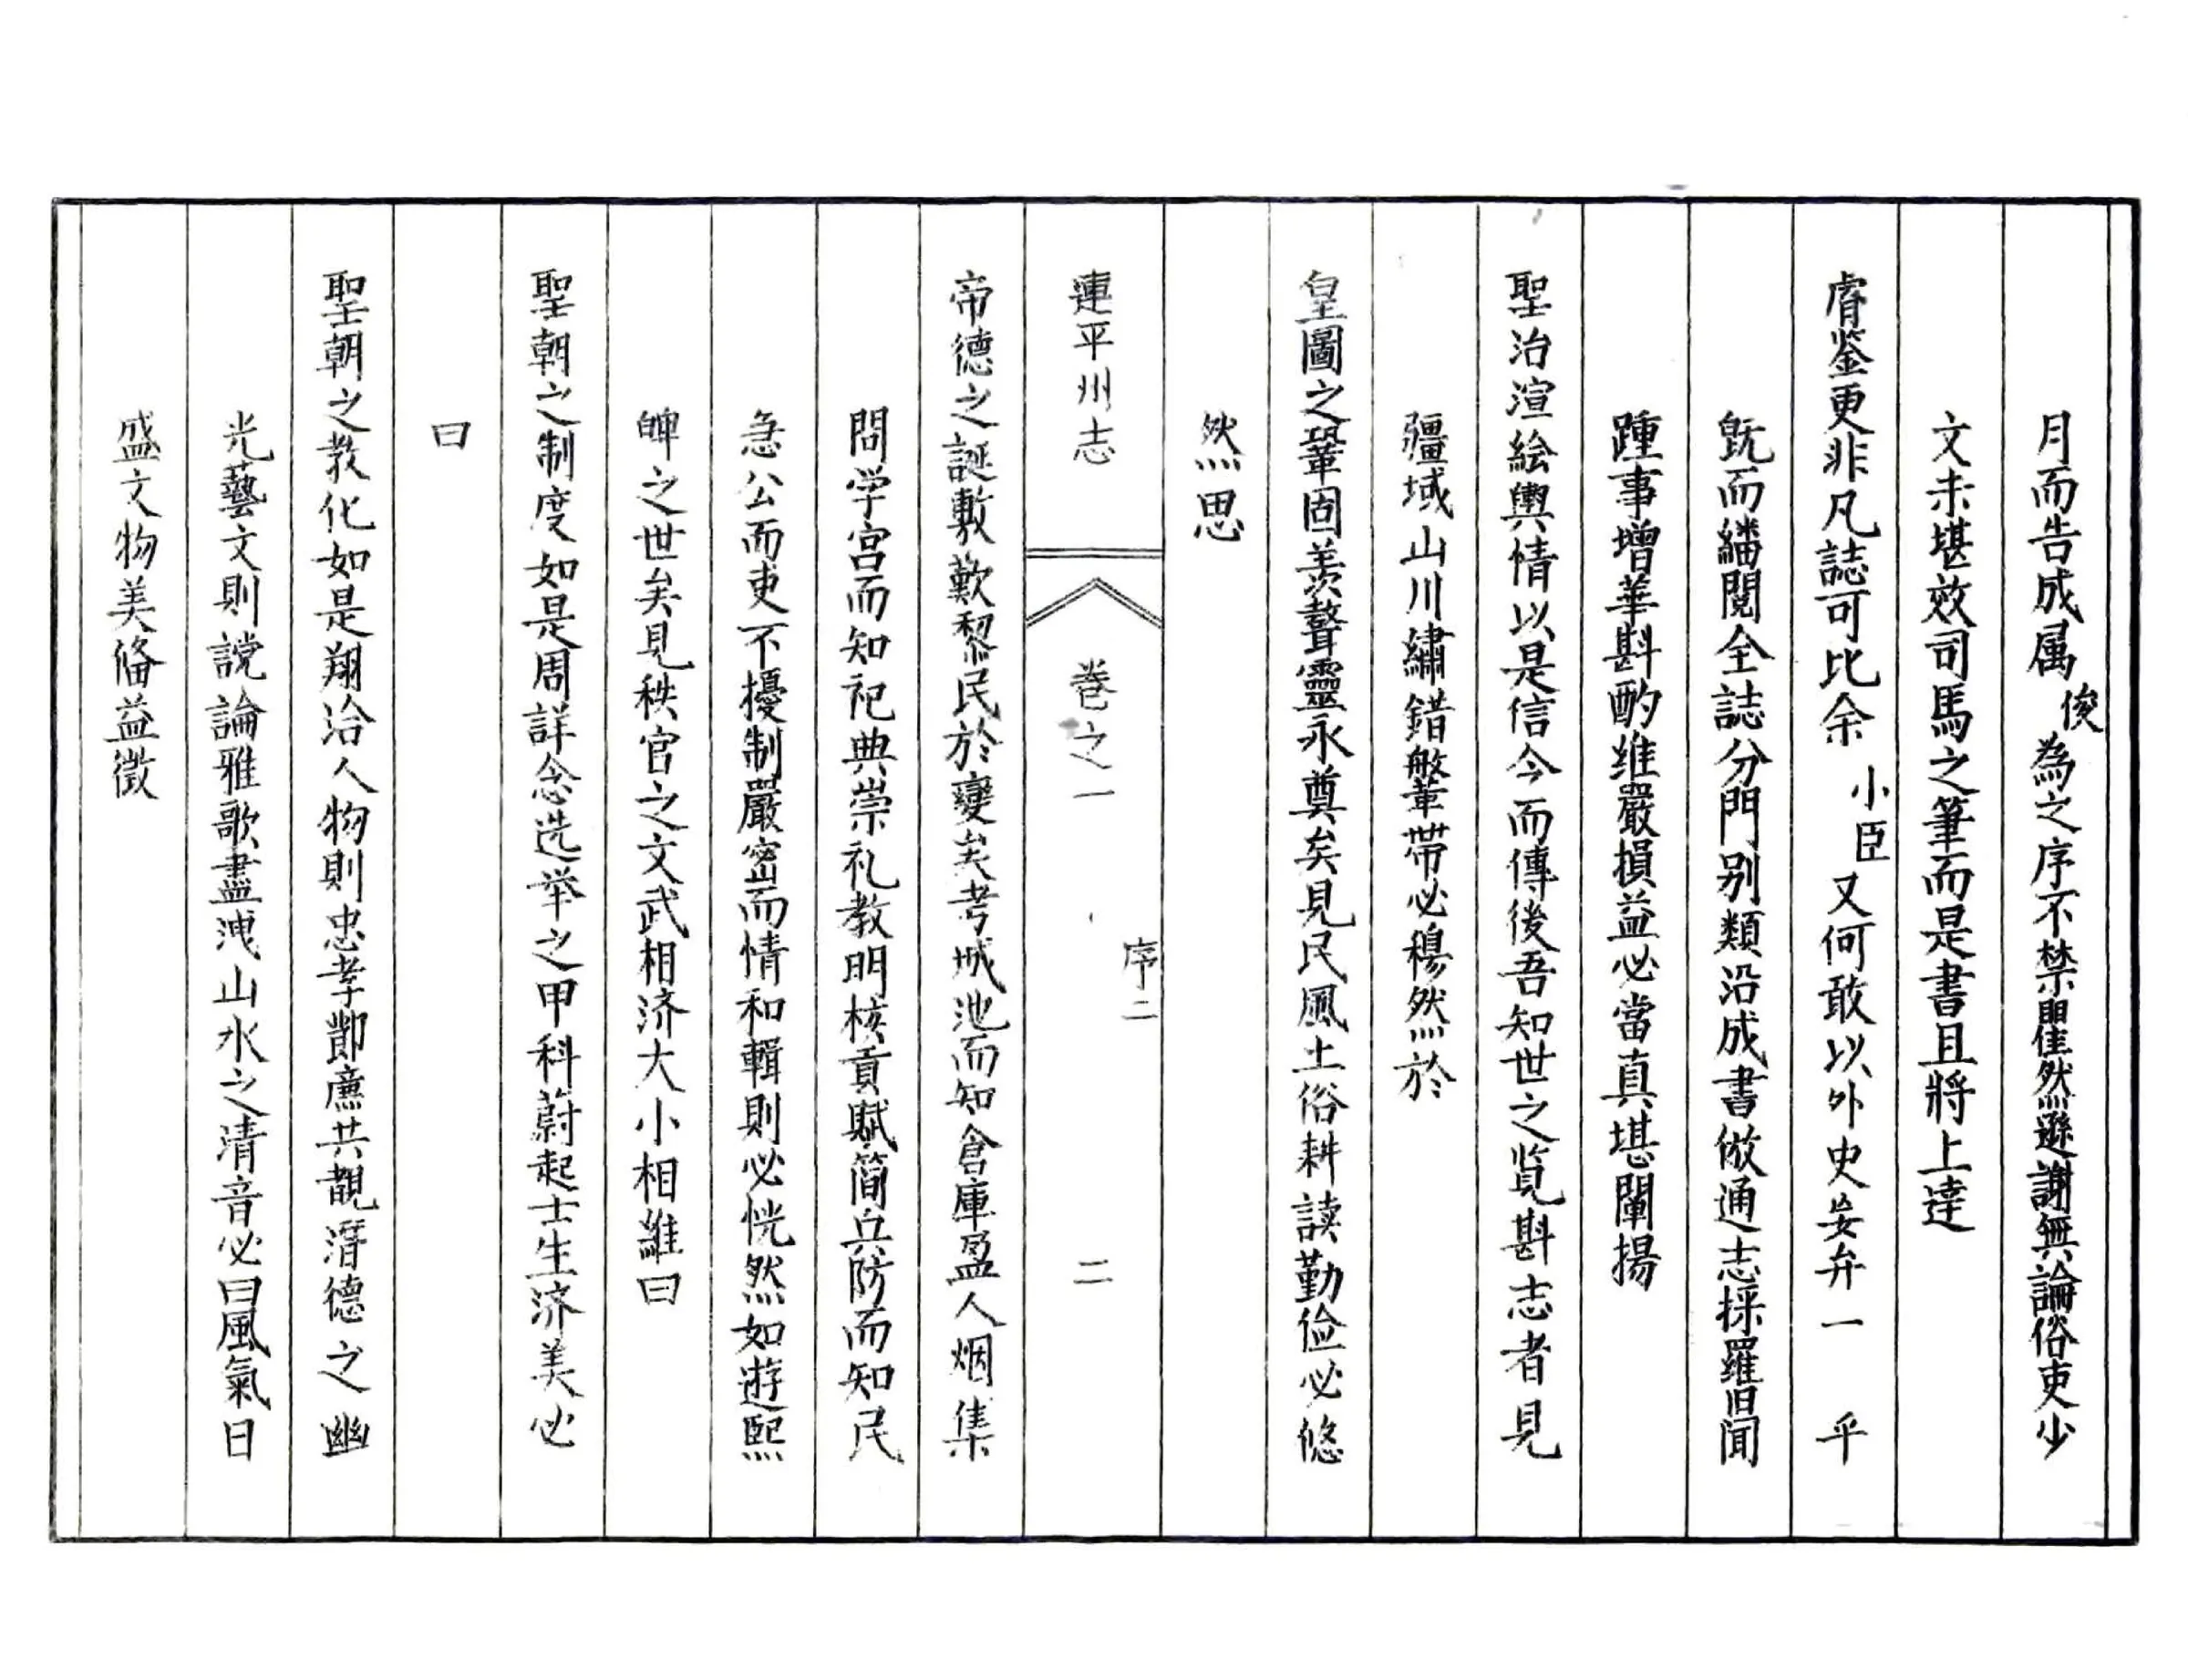 月而告成属俊為之序不禁瞿然遜謝無論俗吏少
文未堪效司馬之筆而是書且將上達
睿鉴更非凡誌可比余小臣又何敢以外史妄弁一乎
既而繙閱全誌分門别類沿成書倣通志採羅旧聞
踵事增華斟酌维嚴損益必當真堪闡揚
聖治渲绘輿情以是信今而傳後吾知世之览斟志者見
疆域山川繡錯鞶帶必穆然於
皇圖之鞏固羡聱靈永奠矣見民風土俗耕读勤俭必悠
然思
連平州志 卷之一 序二 二
帝德之誕敷歎黎民於變矣考城池而知倉庫盈人烟集
問学宫而知祀典崇礼教明核貢賦简兵防而知民
急公而吏不擾制嚴密而情和輯則必恍然如遊熙
皥之世矣見秩官之文武相济大小相維曰
聖朝之制度如是周詳念选举之甲科蔚起士生济美必
曰
聖朝之教化如是翔洽人物則忠孝節廉共覩潛德之幽
光藝文則説論雅歌盡洩山水之清音必曰風氣日
盛文物美俻益徵